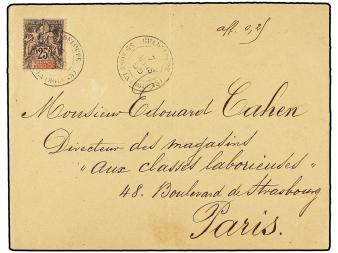 25
aff. 0,25
Monsieur Edouard Cahen
Directeur des magasins
"aux classes laborieuses"
48. Boulevard de Strasbourg
Paris.